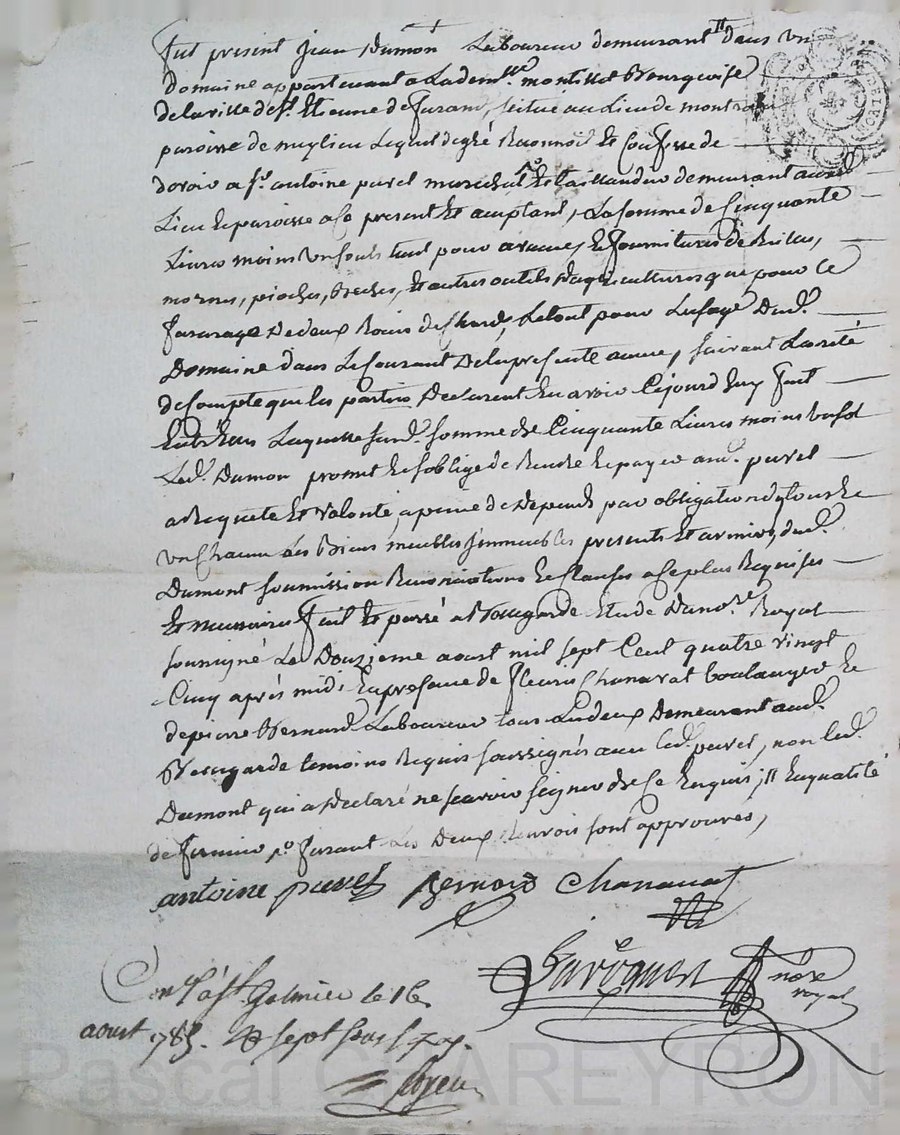 Fut present Jean Dumon Laboureur demeurant || dans un
Domaine appartenant a Lademlle montillot Bourgoise
delaville de St. Etienne de furand, scitué au Lieu de
paroisse de meylieu Lequel degré Reconnoit Et Confesse de
devoir a Sr. antoine pavet marechal Et taillandier demeurant aud.
Lieu Et paroisse a Ce present Et aceptant, La somme de Cinquante
Livres moins un sols tant pour araures, Et fournitures de Reilles,
mornes, pioches, Beches, Et autres outils D'agriculture que pour le
ferurage De deux Roues de Chard, Le tout pour Lusage Dud.
Domaine dans Le Courant De La presente année, suivant Larété
de Compte que les parties Declarent En avoir Cejourd'huy fait
Entr'Eux Laquelle susd. somme de Cinquante Livres moins un sol
Led. Dumon promet Et s'oblige de Rendre Et payer aud. pavet
a Requete Et Volonté, a peine de Depends par obligation de tous Et
un Chacun Les Biens meubles immeubles presents Et avenirs, dud.
Dumont soumission Renonciations Et Clauses a Ce plus Requises
Et necessaires fait Et passé a Bellegarde Etude Du nore. Royal
soussigné Le Douzieme aoust mil sept Cent quatre vingt
Cinq après midi En presence de fleuris Chanavat boulanger Et
de pierre Bernard Laboureur tous Les deux Demeurant aud.
Bellegarde temoins Requis soussignés avec led. pavet, non led.
Dumont qui a Declaré ne scavoir signer de Ce Enquis; || En qualité
de fermier, Jurant Les Deux Renvois sont approuvés,
antoine pavet Bernard Chanavat
nore royal
Con.lé a St. Galmier le 16
aoust 1785. R sept sous